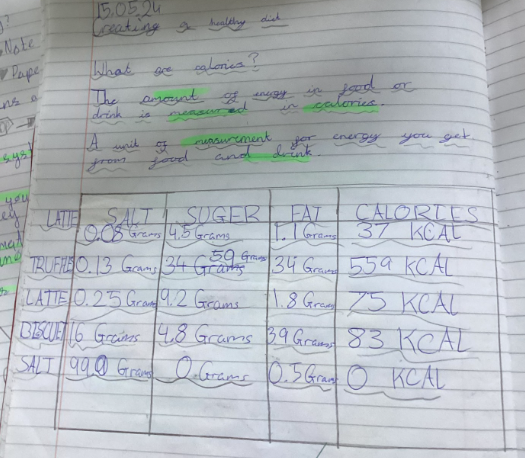 15.05.24
Creating a healthy diet
What are calories?
The amount of energy in food or
drink is measured in calories.
A unit of measurement for energy you get
from food and drink.
SALT SUGER FAT CALORIES
LATTE 0.08 Grams 4.5 Grams 1.1 Grams 37 KCAL
TRUFFLE 0.13 Grams 34 Grams 59 Grams 34 Grams 559 KCAL
LATTE 0.25 Grams 9.2 Grams 1.8 Grams 75 KCAL
BISCUET 16 Grams 4.8 Grams 39 Grams 83 KCAL
SALT 99.0 Grams 0 Grams 0.5 Gram 0 KCAL
Note